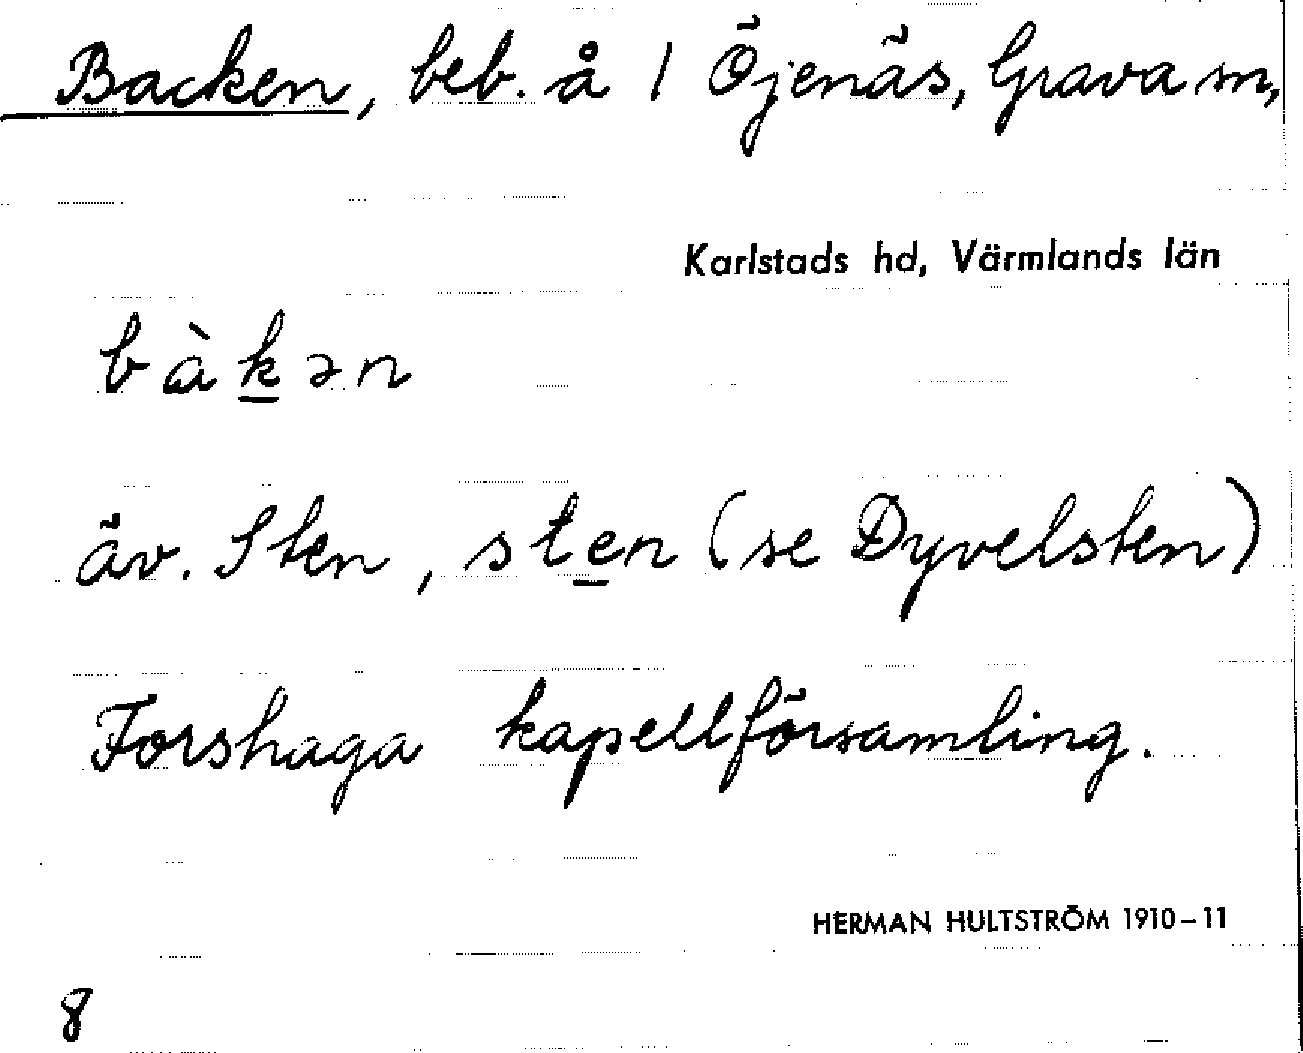 Backen, beb. å 1 Öjenäs, Grava sn,
Karlstads hd, Värmlands län
bàkən
äv. Sten, sten (se Dyvelsten)
Forshaga kapellförsamling.
HERMAN HULTSTRÖM 1910–11
8